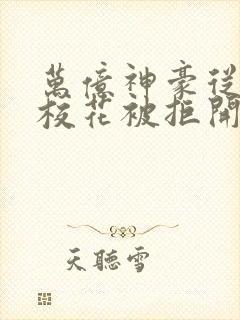 萬億神豪從
校花被拒開
天聽雪